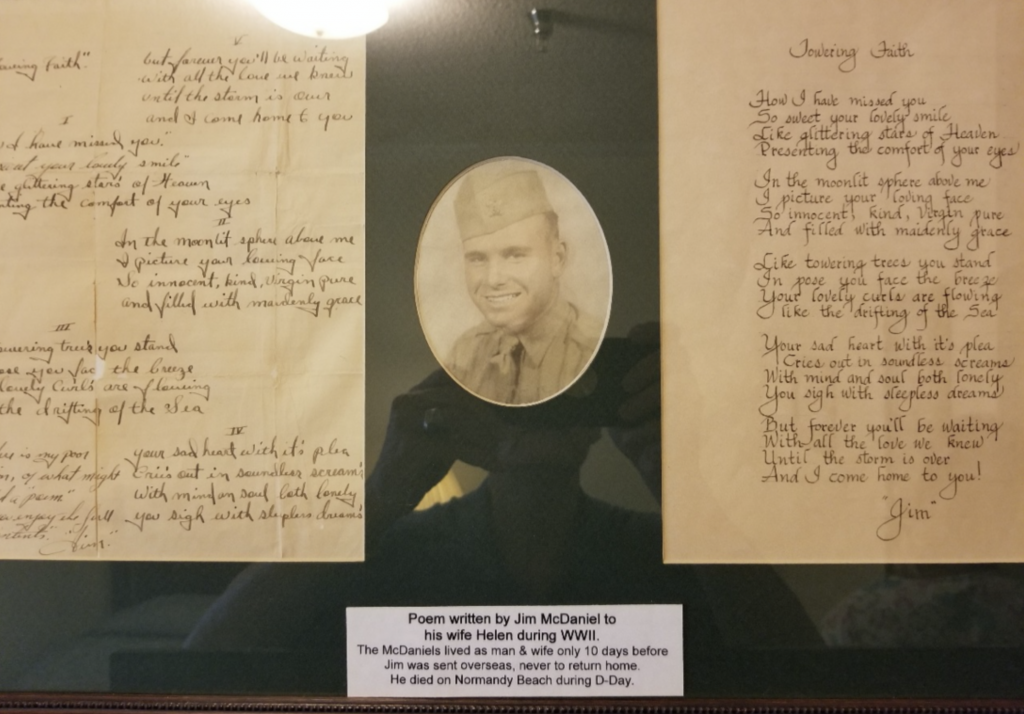 owering Faith"
I
I have missed you."
your lovely smile"
glittering stars of Heaven
the comfort of your eyes
II
In the moonlit sphere above me
I picture your loving face
So innocent, kind, Virgin pure
and filled with maidenly grace
III
towering trees you stand
you face the breeze
lovely Curls are flowing
the drifting of the Sea
IV
your sad heart with it's plea
Cries out in soundless screams
With mind an soul both lonely
you sigh with sleepless dreams
V
but forever you'll be waiting
with all the love we knew
until the storm is over
and I come home to you
is my poor
of what might
a poem."
enjoy its full
"Jim"
Towering Faith
How I have missed you
So sweet your lovely smile
Like glittering stars of Heaven
Presenting the comfort of your eyes
In the moonlit sphere above me
I picture your loving face
So innocent, kind, Virgin pure
And filled with maidenly grace
Like towering trees you stand
In pose you face the breeze
Your lovely curls are flowing
like the drifting of the Sea
Your sad heart with it's plea
Cries out in soundless screams
With mind and soul both lonely
You sigh with sleepless dreams
But forever you'll be waiting
With all the love we knew
Until the storm is over
And I come home to you!
"Jim"
Poem written by Jim McDaniel to
his wife Helen during WWII.
The McDaniels lived as man & wife only 10 days before
Jim was sent overseas, never to return home.
He died on Normandy Beach during D-Day.